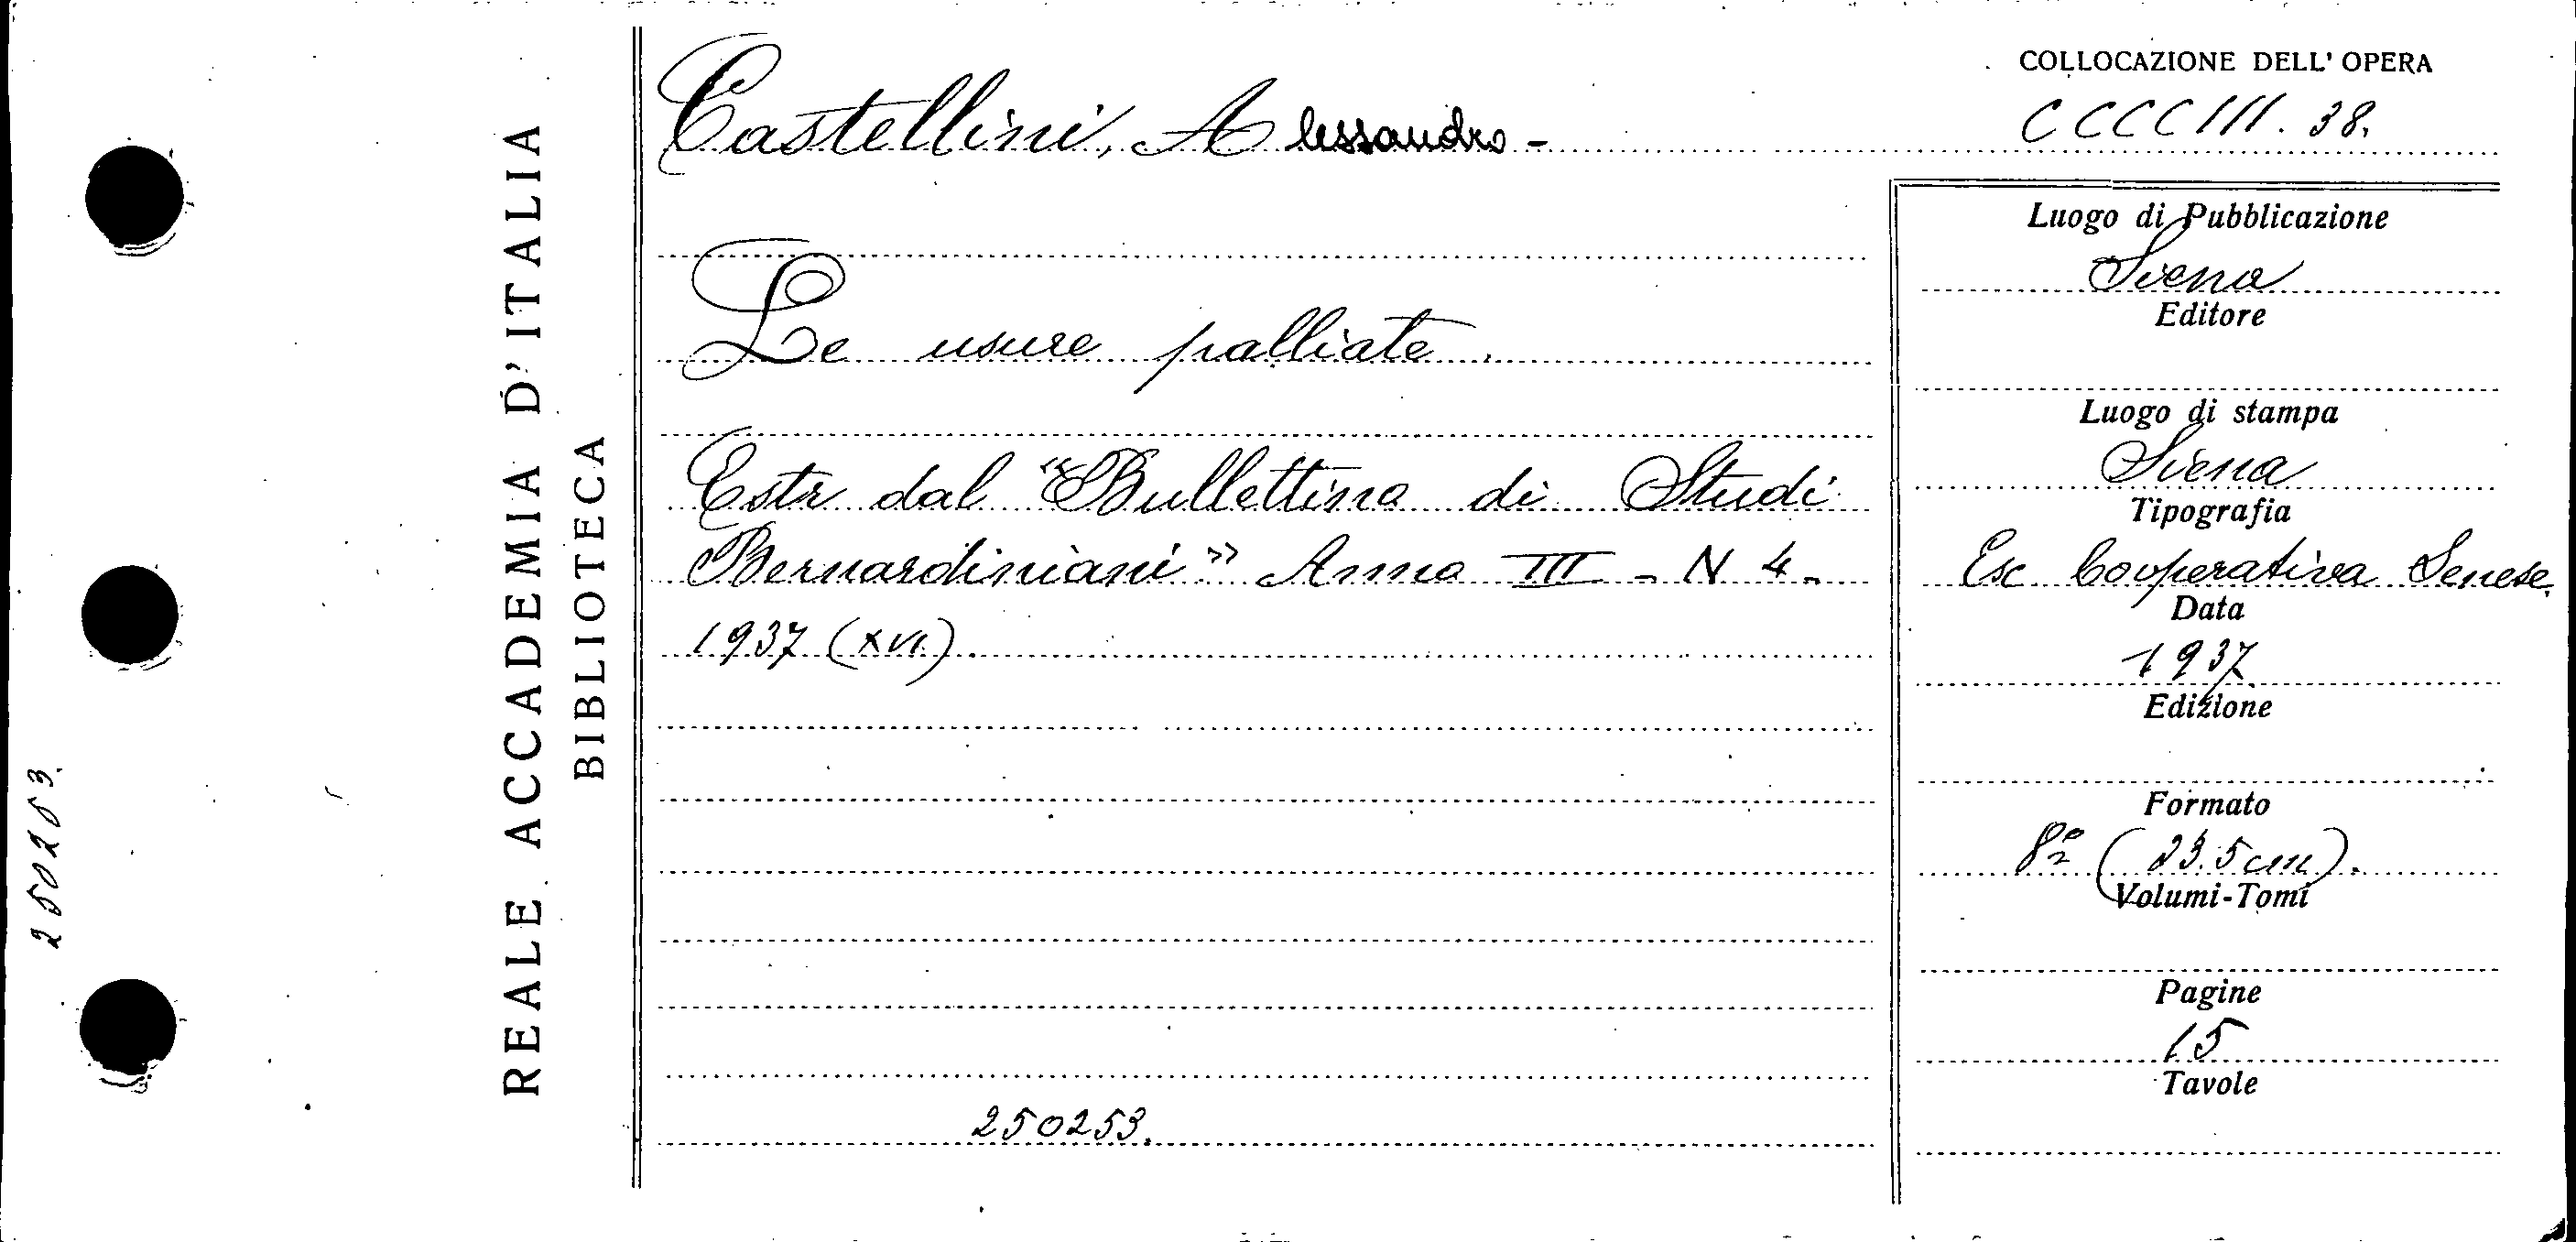 250253.
REALE ACCADEMIA D'ITALIA
BIBLIOTECA
Castellini, Alessandro -
Le usure palliate.
Estr dal "Bullettino di Studi
Bernardiniani" Anno III - N 4.
1937 (XVI).
250253.
COLLOCAZIONE DELL' OPERA
CCCCIII. 38.
Luogo di Pubblicazione
Siena
Editore
Luogo di stampa
Siena
Tipografia
Esc Cooperativa Senese.
Data
1937
Edizione
Formato
8º (23.5 cm).
Volumi-Tomi
Pagine
15
Tavole